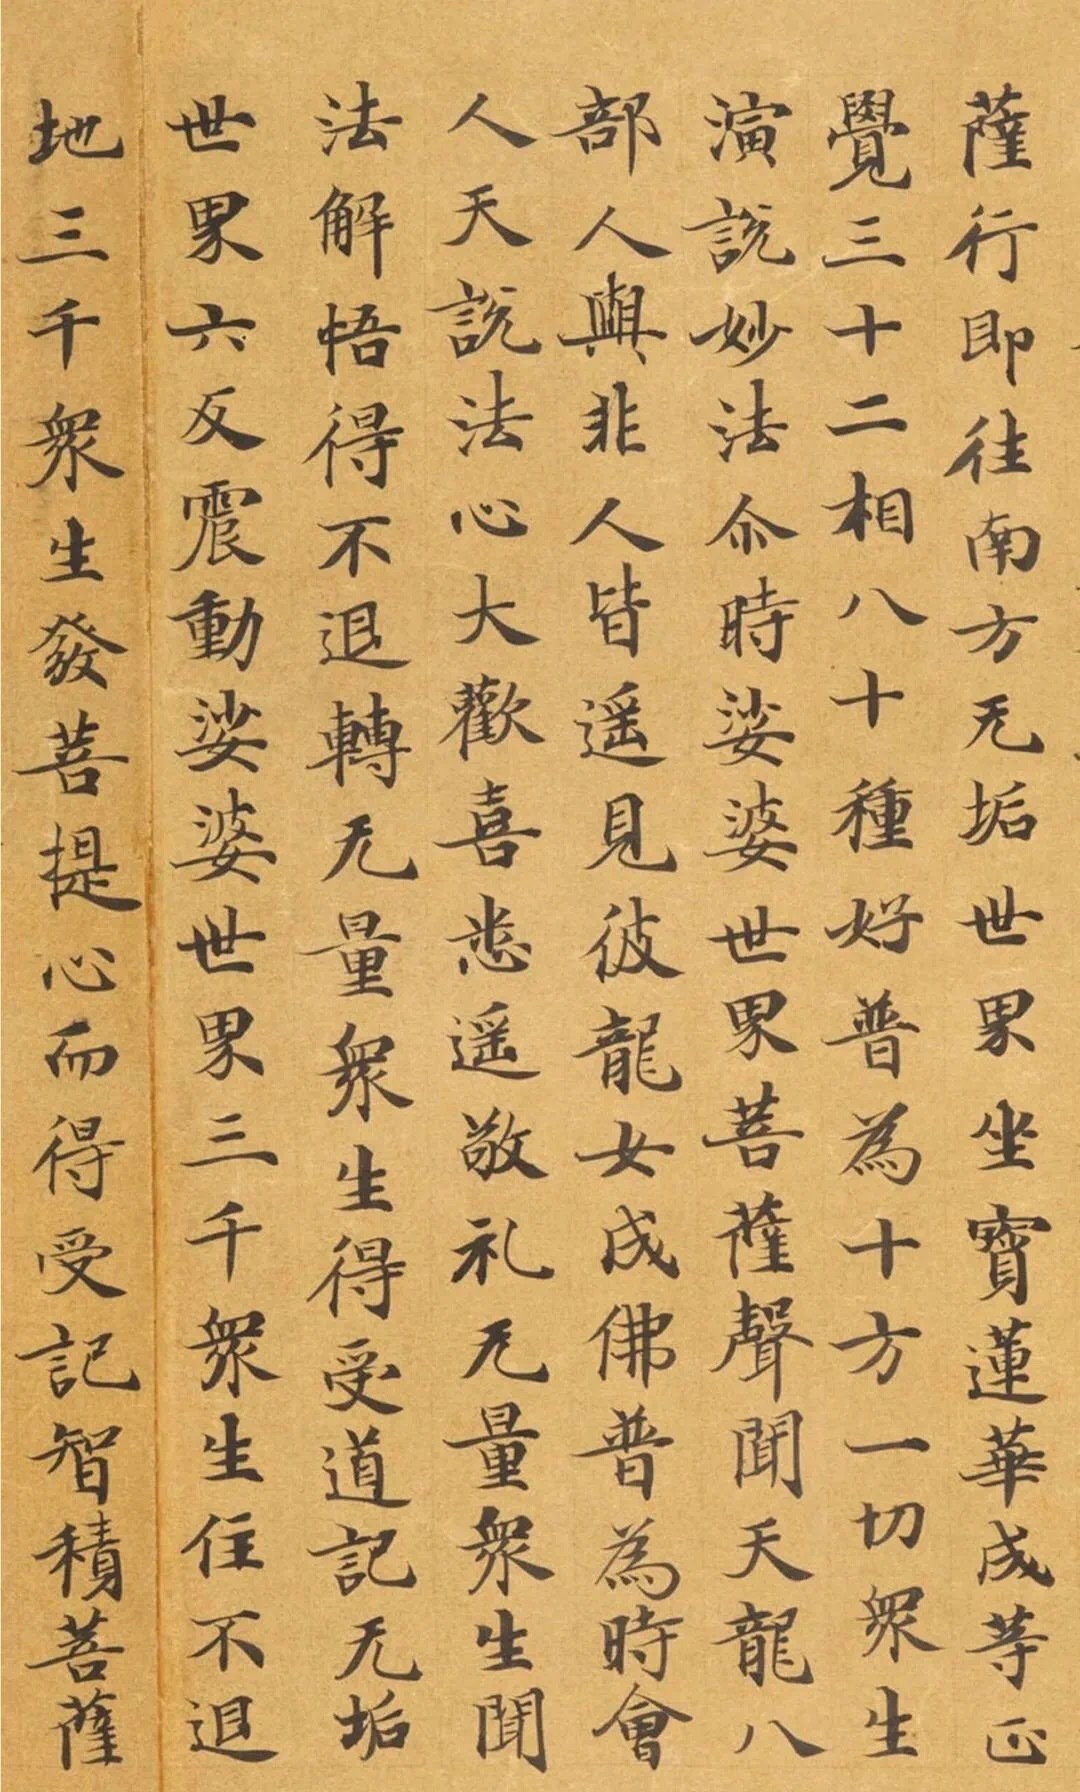 薩行即往南方无垢世界坐寳蓮華成等正
覺三十二相八十種好普為十方一切衆生
演說妙法尒時娑婆世界菩薩聲聞天龍八
部人與非人皆遥見彼龍女成佛普為時會
人天說法心大歡喜悉遥敬礼无量衆生聞
法解悟得不退轉无量衆生得受道記无垢
世界六反震動娑婆世界三千衆生住不退
地三千衆生發菩提心而得受記智積菩薩